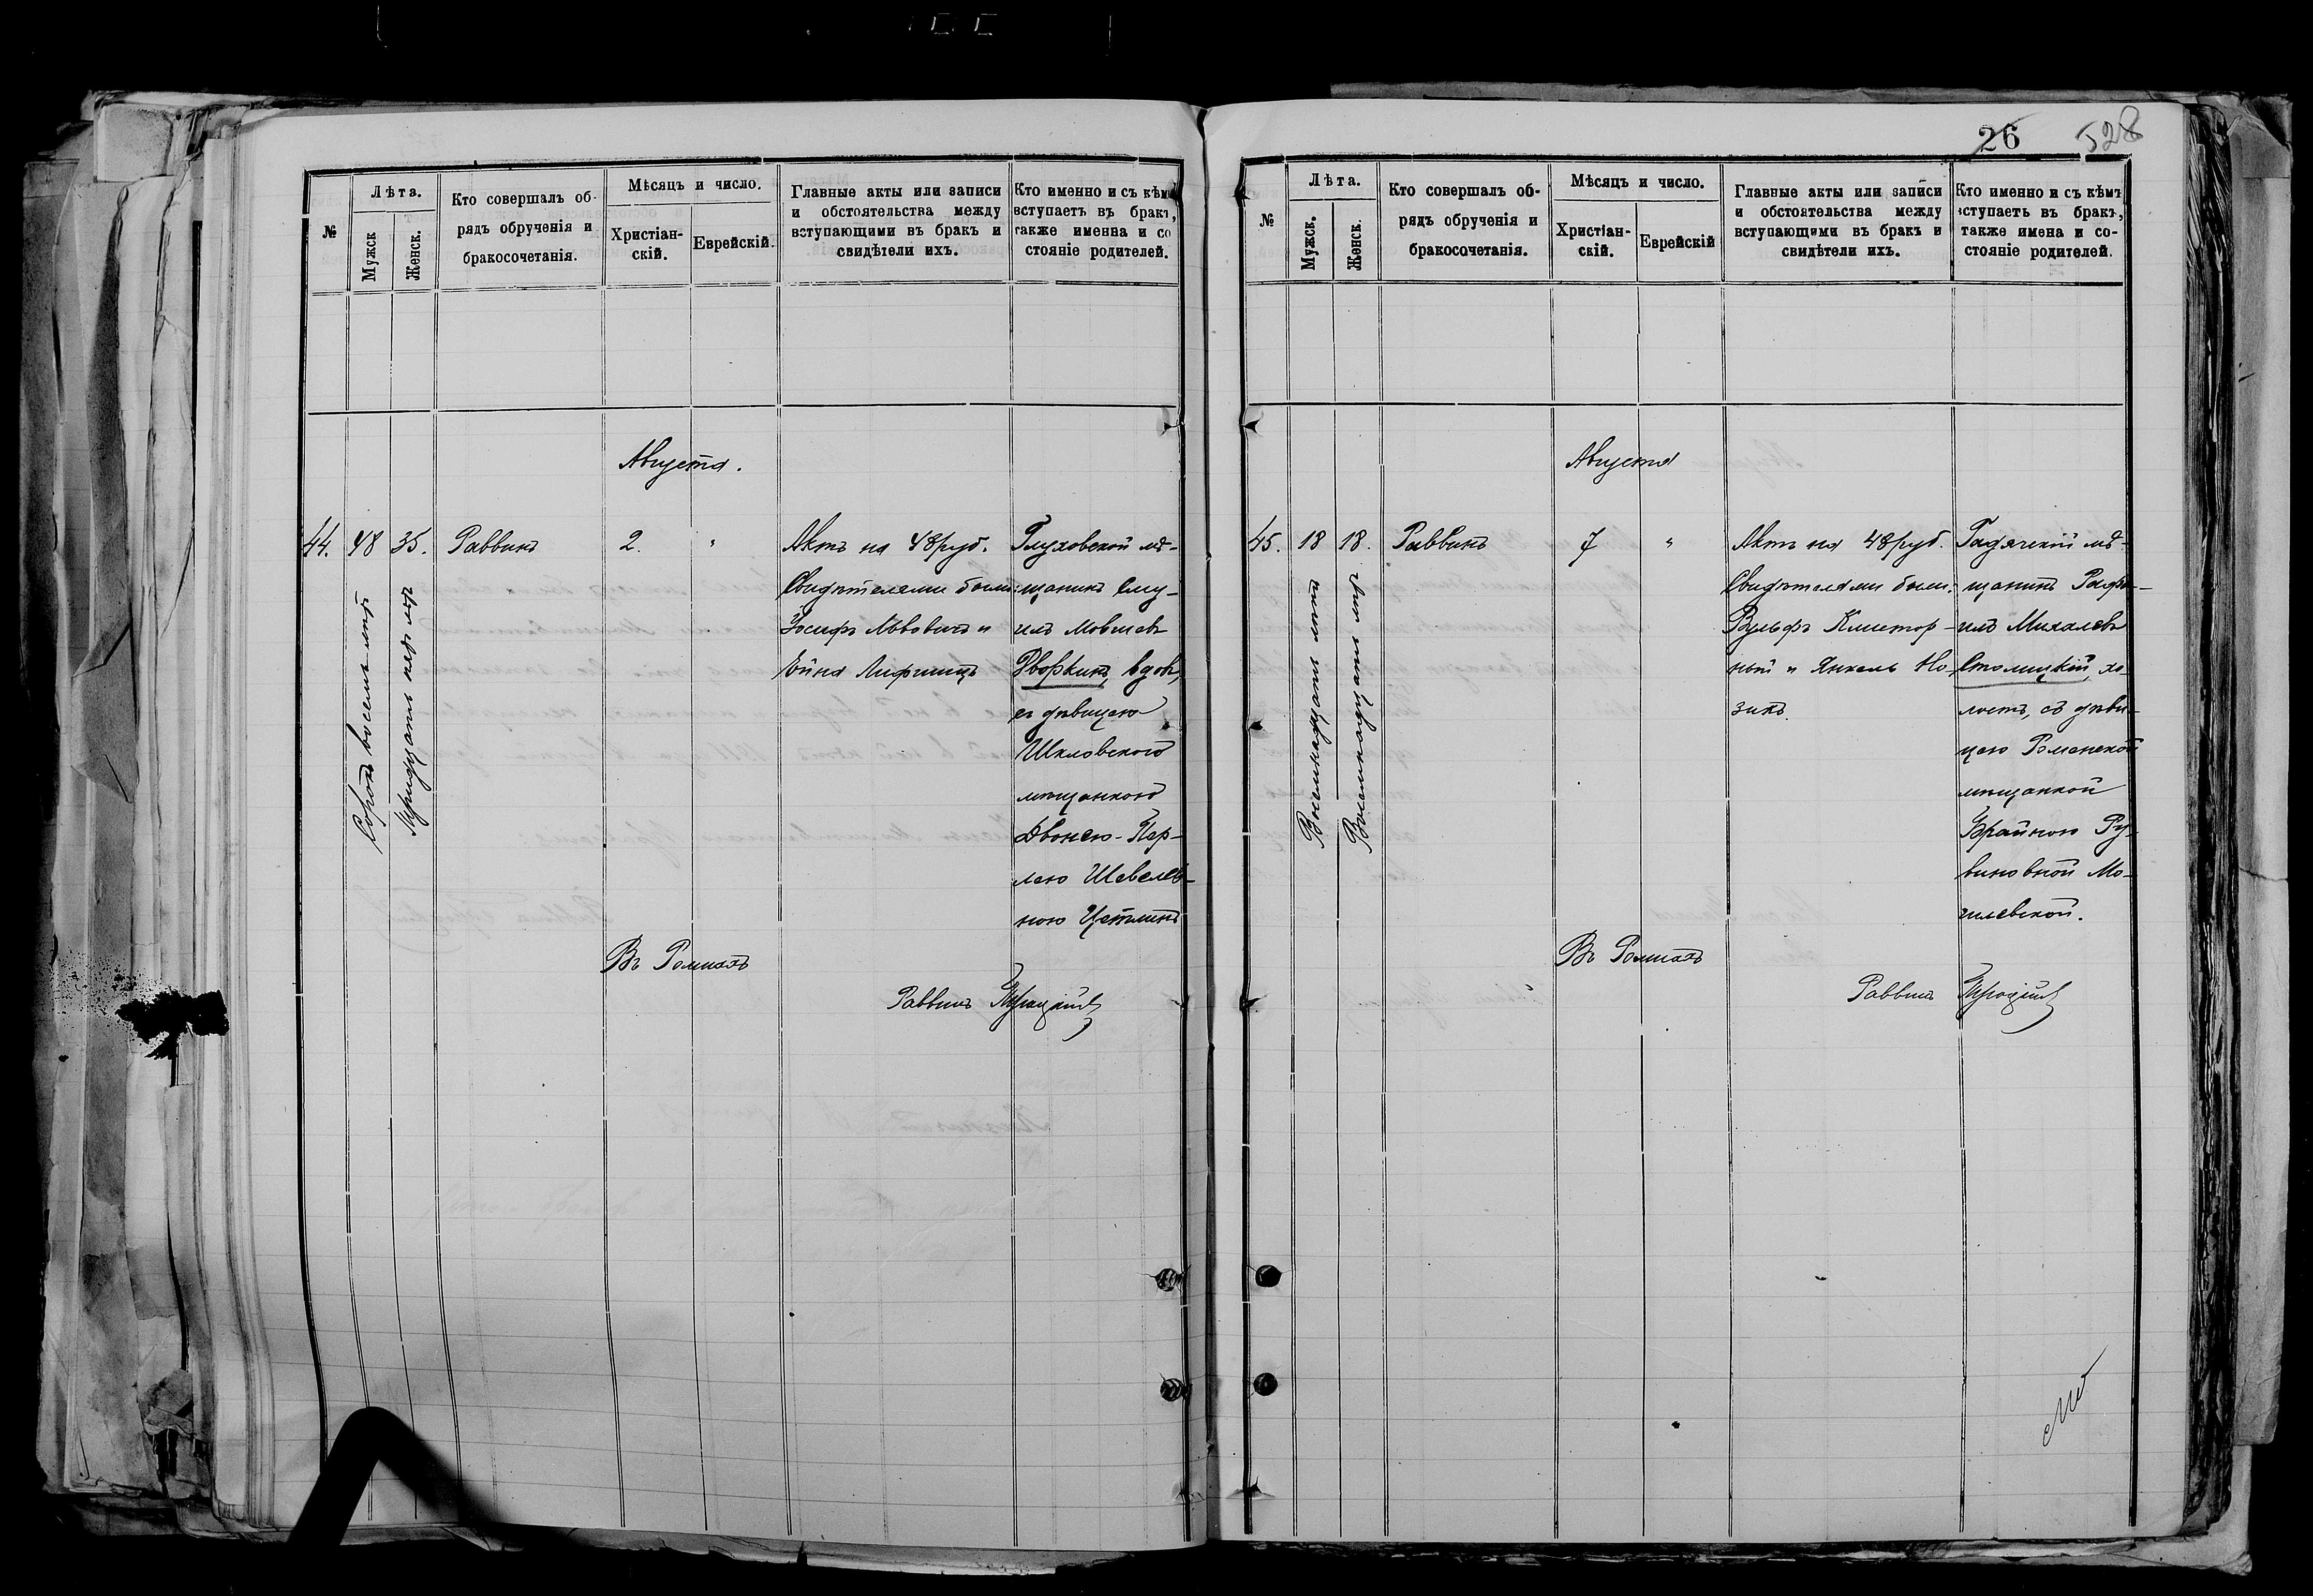 №
Лѣта.
Мужск
Женск.
Кто совершалъ об-
рядъ обрученія и
бракосочетанія.
Мѣсяцъ и число.
Христіан-
скій.
Еврейскій.
Главные акты или записи
и обстоятельства между
вступающими въ бракъ и
свидѣтели ихъ.
Кто именно и съ кѣмъ
вступаетъ въ бракъ,
также имена и со
стояніе родителей.
Августа.
44.
48
35.
Сорокъ восемь лѣтъ
Тридцать пять лѣтъ
Раввинъ
2.
"
Актъ на 48 руб.
Свидѣтелями были:
Іосифъ Львовичъ и
Лифшицъ
Глуховской мѣ-
щанинъ
Мовшевъ
Дворкинъ, вдов,
съ дѣвицею
Шкловскою
мѣщанкою
Двонею-Пер-
лею Шевелев-
ною Цетлинъ
Въ Ромнахъ
Раввинъ Троцкій
26
528
№
Лѣта.
Мужск.
Женск.
Кто совершалъ об-
рядъ обрученія и
бракосочетанія.
Мѣсяцъ и число.
Христіан-
скій.
Еврейскій
Главные акты или записи
и обстоятельства между
вступающими въ бракъ и
свидѣтели ихъ.
Кто именно и съ кѣмъ
вступаетъ въ бракъ,
также имена и со-
стояніе родителей.
Августа
45.
18
18.
Восемнадцать лѣтъ
Восемнадцать лѣтъ
Раввинъ
7
"
Актъ на 48 руб.
Свидѣтелями были:
Вульфъ Клистор-
ный и Янкель Но-
зикъ.
Гадячскій мѣ-
щанинъ Рафа-
илъ Михелевъ
Столицкій, хо-
лостъ, съ дѣви-
цею Роменской
мѣщанкой
Фрайною Ру-
виновной Мо-
гилевской.
Въ Ромнахъ
Раввинъ Троцкій